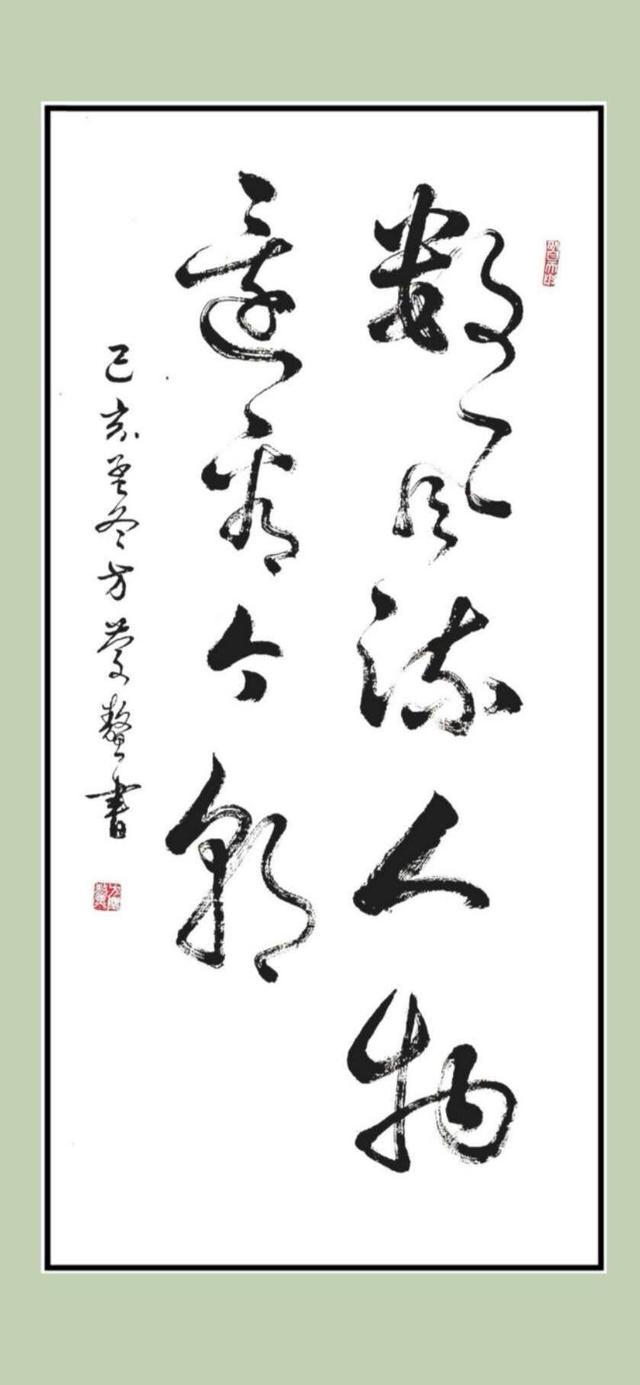 數風流人物
還看今朝
己亥冬方書